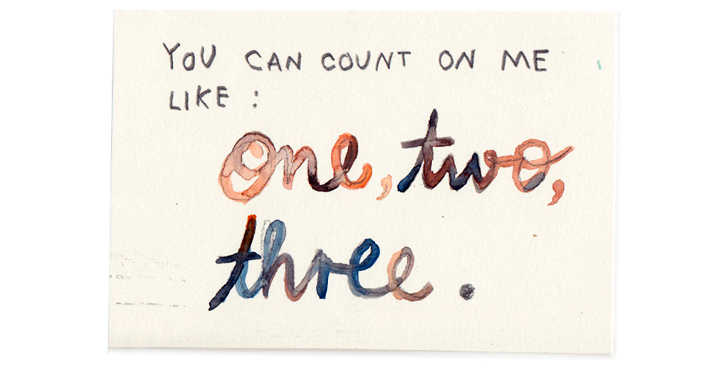 YOU CAN COUNT ON ME
LIKE :
one, two,
three.